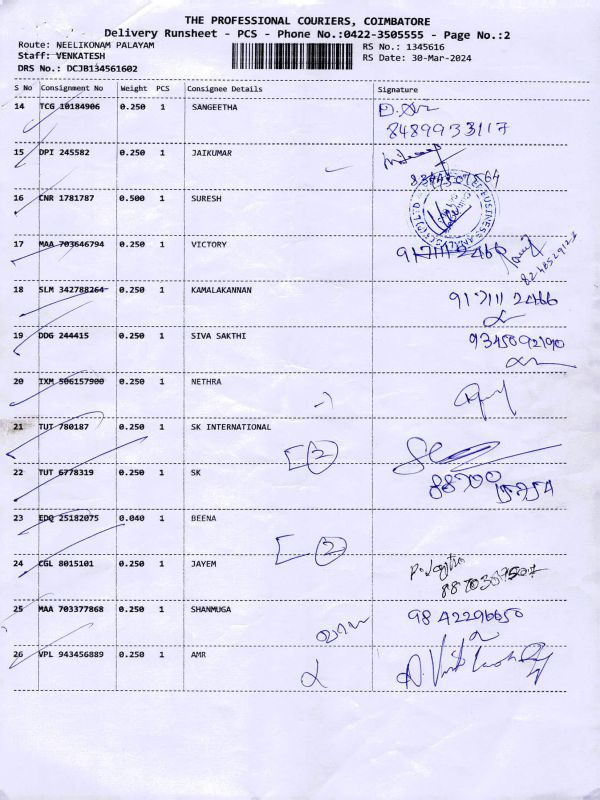 THE PROFESSIONAL COURIERS, COIMBATORE
Delivery Runsheet - PCS - Phone No.:0422-3505555 - Page No.:2
Route: NEELIKONAM PALAYAM
RS No.: 1345616
Staff: VENKATESH
RS Date: 30-Mar-2024
DRS No.: DCJB134561602
S No Consignment No Weight PCS Consignee Details Signature
14 TCG 10184906 0.250 1 SANGEETHA
8489933117
15 DPI 245582 0.250 1 JAIKUMAR
16 CNR 1781787 0.500 1 SURESH
17 MAA 703646794 0.250 1 VICTORY
18 SLM 342788264 0.250 1 KAMALAKANNAN
917111 2466
19 DDG 244415 0.250 1 SIVA SAKTHI
9345092190
20 IXM 506157900 0.250 1 NETHRA
21 TUT 780187 0.250 1 SK INTERNATIONAL
2
22 TUT 6778319 0.250 1 SK
88700
15754
23 EDQ 25182075 0.040 1 BEENA
2
24 CGL 8015101 0.250 1 JAYEM
25 MAA 703377868 0.250 1 SHANMUGA
98 42296650
26 VPL 943456889 0.250 1 AMR